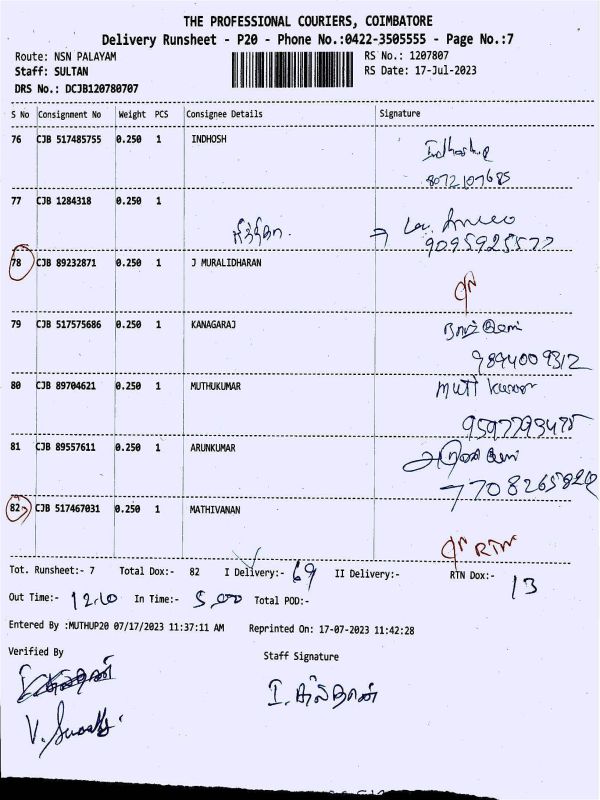 THE PROFESSIONAL COURIERS, COIMBATORE
Delivery Runsheet - P20 - Phone No.:0422-3505555 - Page No.:7
Route: NSN PALAYAM RS No.: 1207807
Staff: SULTAN RS Date: 17-Jul-2023
DRS No.: DCJB120780707
S No Consignment No Weight PCS Consignee Details Signature
76 CJB 517485755 0.250 1 INDHOSH
8072107685
77 CJB 1284318 0.250 1
9095925577
78 CJB 89232871 0.250 1 J MURALIDHARAN
79 CJB 517575686 0.250 1 KANAGARAJ
9894009312
80 CJB 89704621 0.250 1 MUTHUKUMAR
9597793475
81 CJB 89557611 0.250 1 ARUNKUMAR
82 CJB 517467031 0.250 1 MATHIVANAN
RTN
Tot. Runsheet:- 7 Total Dox:- 82 I Delivery:- 69 II Delivery:- RTN Dox:- 13
Out Time:- 12.10 In Time:- 5.00 Total POD:-
Entered By :MUTHUP20 07/17/2023 11:37:11 AM Reprinted On: 17-07-2023 11:42:28
Verified By Staff Signature